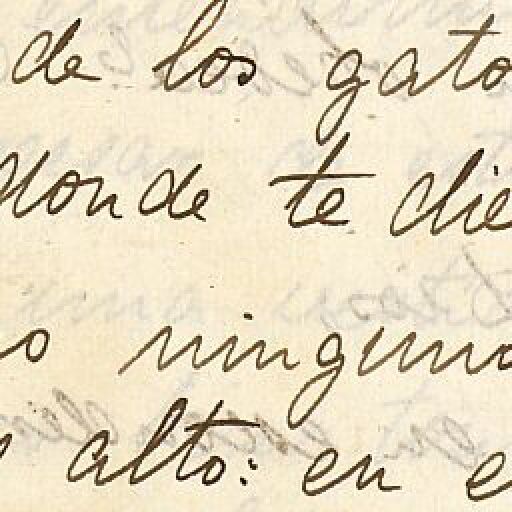 de los gato
donde te die
o ninguno
alto: en e